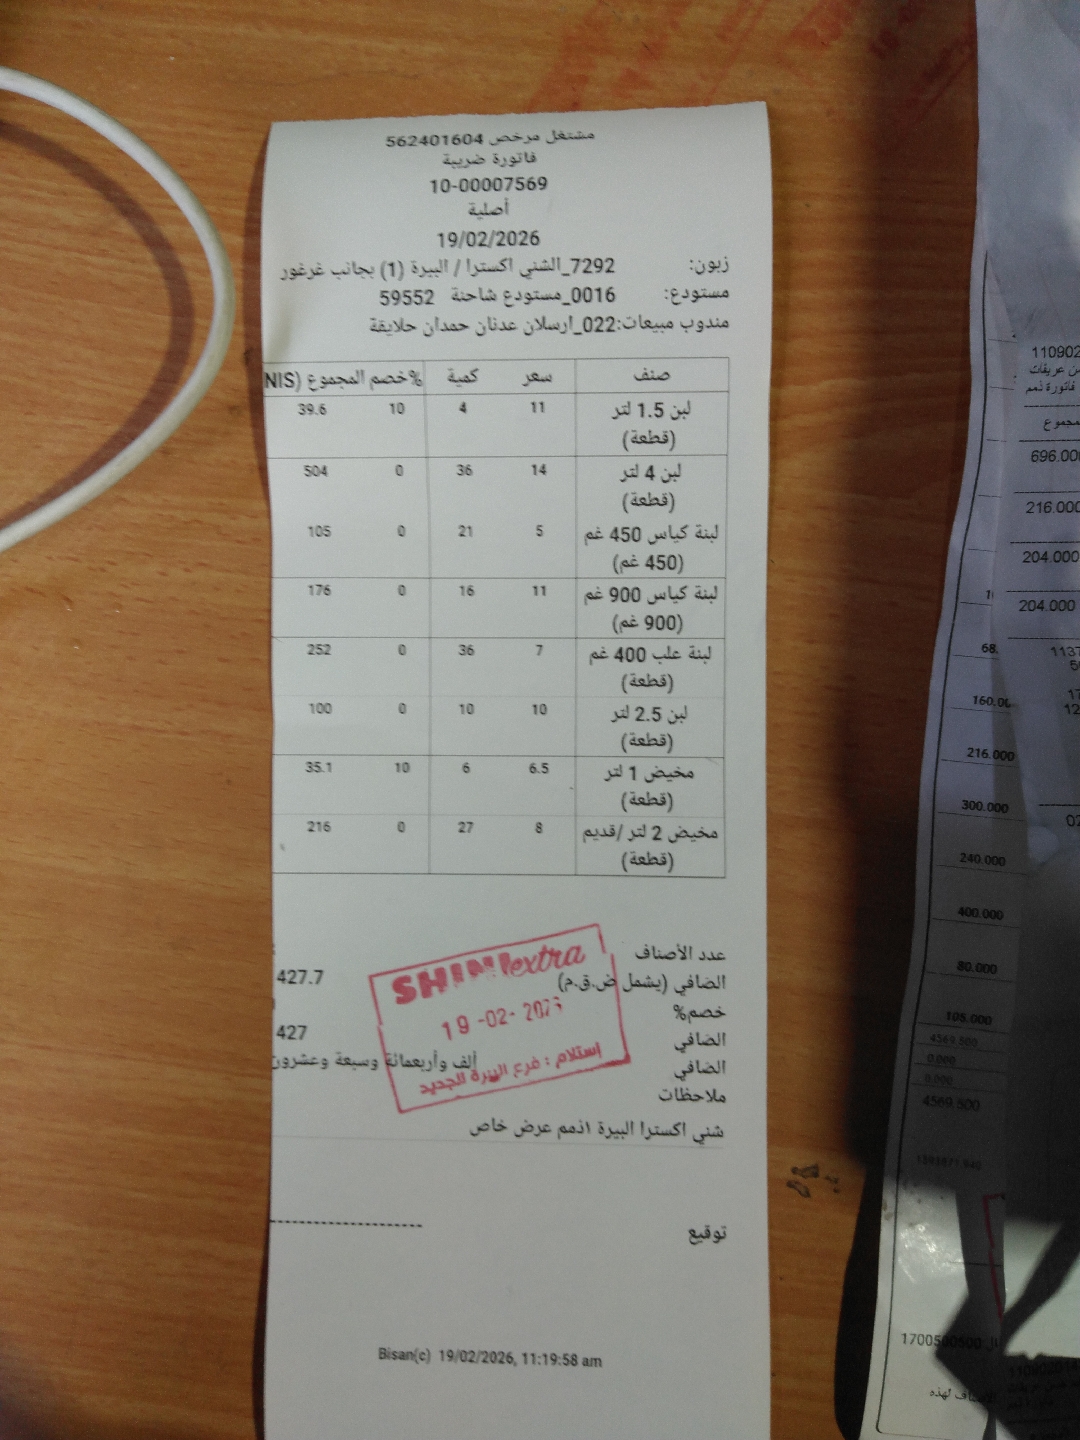 مشتغل مرخص 562401604
فاتورة ضريبة
10-00007569
أصلية
19/02/2026
زبون: 7292_الشني اكسترا / البيرة (1) بجانب غرغور
مستودع: 0016_مستودع شاحنة 59552
مندوب مبيعات:022_ارسلان عدنان حمدان حلايقة
صنف سعر كمية %خصم المجموع (NIS
لبن 1.5 لتر 11 4 10 39.6
(قطعة)
لبن 4 لتر 14 36 0 504
(قطعة)
لبنة كياس 450 غم 5 21 0 105
(450 غم)
لبنة كياس 900 غم 11 16 0 176
(900 غم)
لبنة علب 400 غم 7 36 0 252
(قطعة)
لبن 2.5 لتر 10 10 0 100
(قطعة)
مخيض 1 لتر 6.5 6 10 35.1
(قطعة)
مخيض 2 لتر /قديم 8 27 0 216
(قطعة)
عدد الأصناف
الصافي (يشمل ض.ق.م) 427.7
خصم%
الصافي 427
الصافي ألف وأربعمائة وسبعة وعشرون
ملاحظات
شني اكسترا البيرة اذمم عرض خاص
SHINI extra
19-02-2026
إستلام : فرع البيرة الجديد
توقيع
Bisan(c) 19/02/2026, 11:19:58 am
68.
160.00
216.000
300.000
240.000
400.000
80.000
105.000
4569.500
0.000
0.000
4569.500
1700500500
لهذه
110902
فاتورة ذمم
696.00
216.000
204.000
204.000
1137